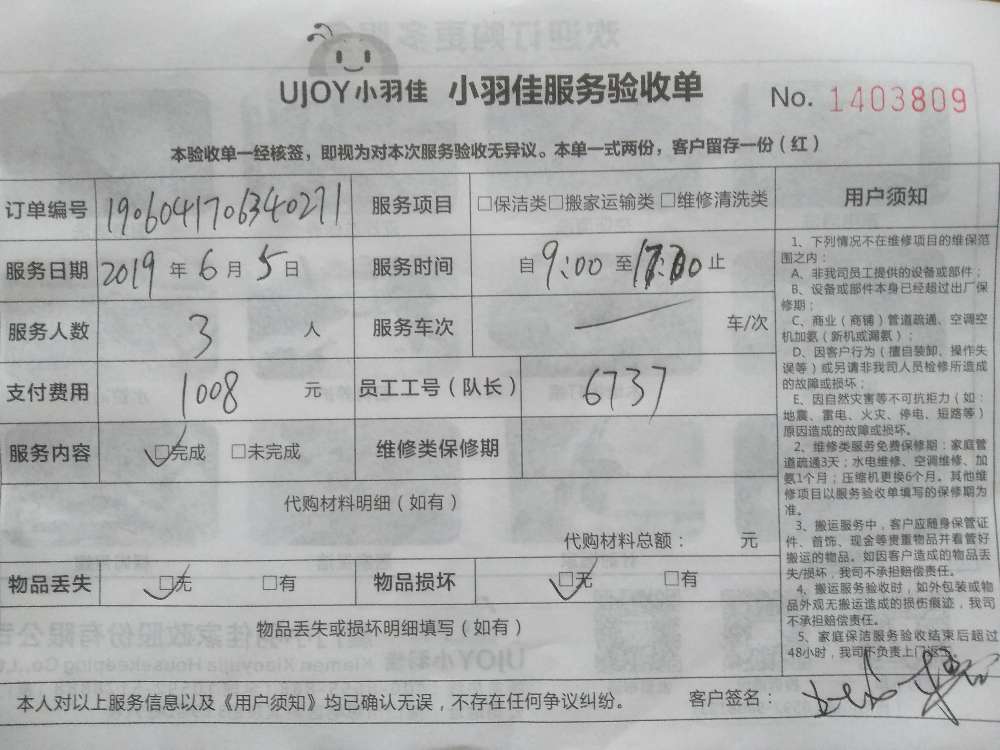 UJOY小羽佳 小羽佳服务验收单 No. 1403809
本验收单一经核签，即视为对本次服务验收无异议。本单一式两份，客户留存一份（红）
订单编号 1906041706340271 服务项目 □保洁类□搬家运输类 □维修清洗类
服务日期 2019 年 6 月 5 日 服务时间 自 9:00 至 止
服务人数 3 人 服务车次 — 车/次
支付费用 1008 元 员工工号（队长） 6737
服务内容 □完成 □未完成 维修类保修期
代购材料明细（如有）
代购材料总额： 元
物品丢失 □无 □有 物品损坏 □无 □有
物品丢失或损坏明细填写（如有）
本人对以上服务信息以及《用户须知》均已确认无误，不存在任何争议纠纷。 客户签名：
用户须知
1、下列情况不在维修项目的维保范
围之内：
A、非我司员工提供的设备或部件；
B、设备或部件本身已经超过出厂保
修期；
C、商业（商铺）管道疏通、空调空
机加氨（新机或漏氨）；
D、因客户行为（擅自装卸、操作失
误等）或另请非我司人员检修所造成
的故障或损坏；
E、因自然灾害等不可抗拒力（如：
地震、雷电、火灾、停电、短路等）
原因造成的故障或损坏。
2、维修类服务免费保修期：家庭管
道疏通3天；水电维修、空调维修、加
氨1个月；压缩机更换6个月。其他维
修项目以服务验收单填写的保修期为
准。
3、搬运服务中，客户应随身保管证
件、首饰、现金等贵重物品并看管好
搬运的物品。如因客户造成的物品丢
失/损坏，我司不承担赔偿责任。
4、搬运服务验收时，如外包装或物
品外观无搬运造成的损伤痕迹，我司
不承担赔偿责任。
5、家庭保洁服务验收结束后超过
48小时，我司不负责上门返工。